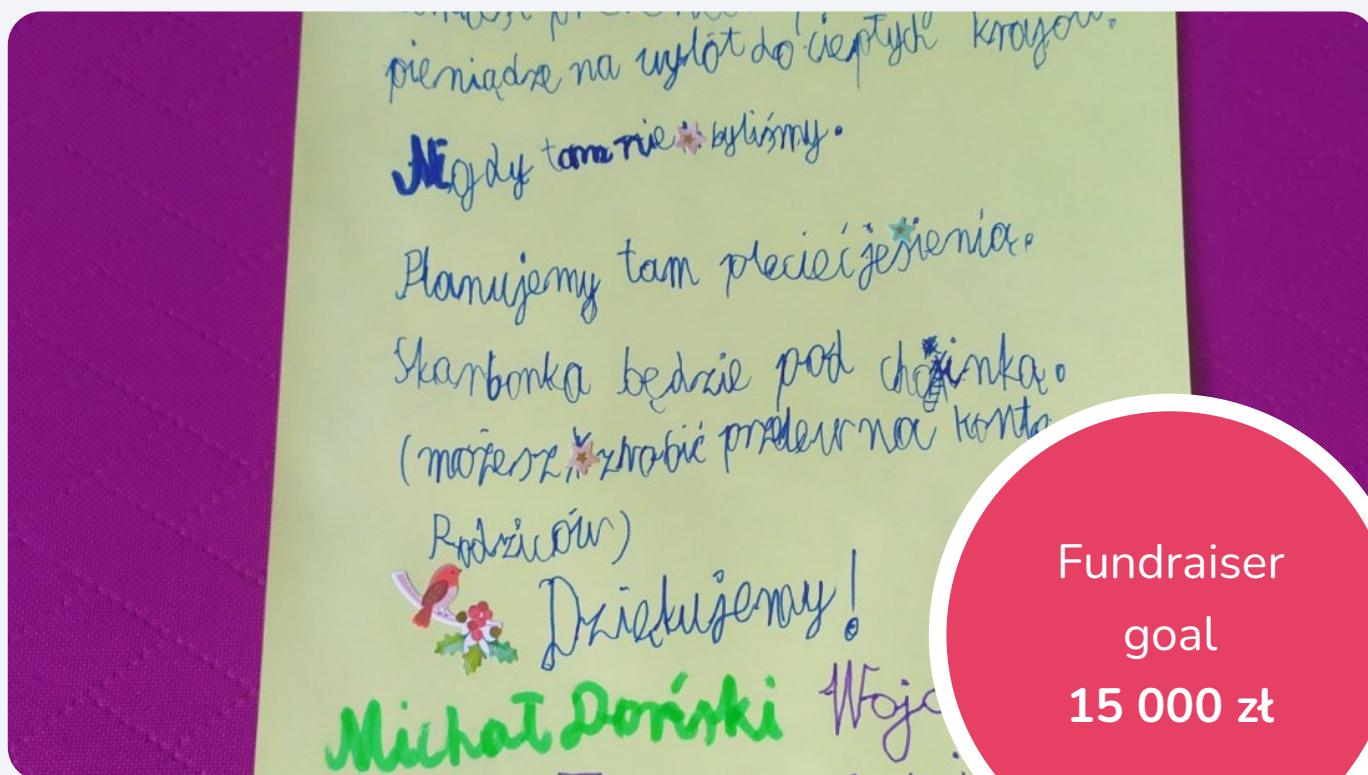 pieniądze na wylot do ciepłych krajów.
Nigdy tam nie byliśmy.
Planujemy tam plecieć jesienią.
Skarbonka będzie pod choinką.
(możesz zrobić przelew na konto
Rodziców)
Dziękujemy!
Michał Doński
Fundraiser
goal
15 000 zł